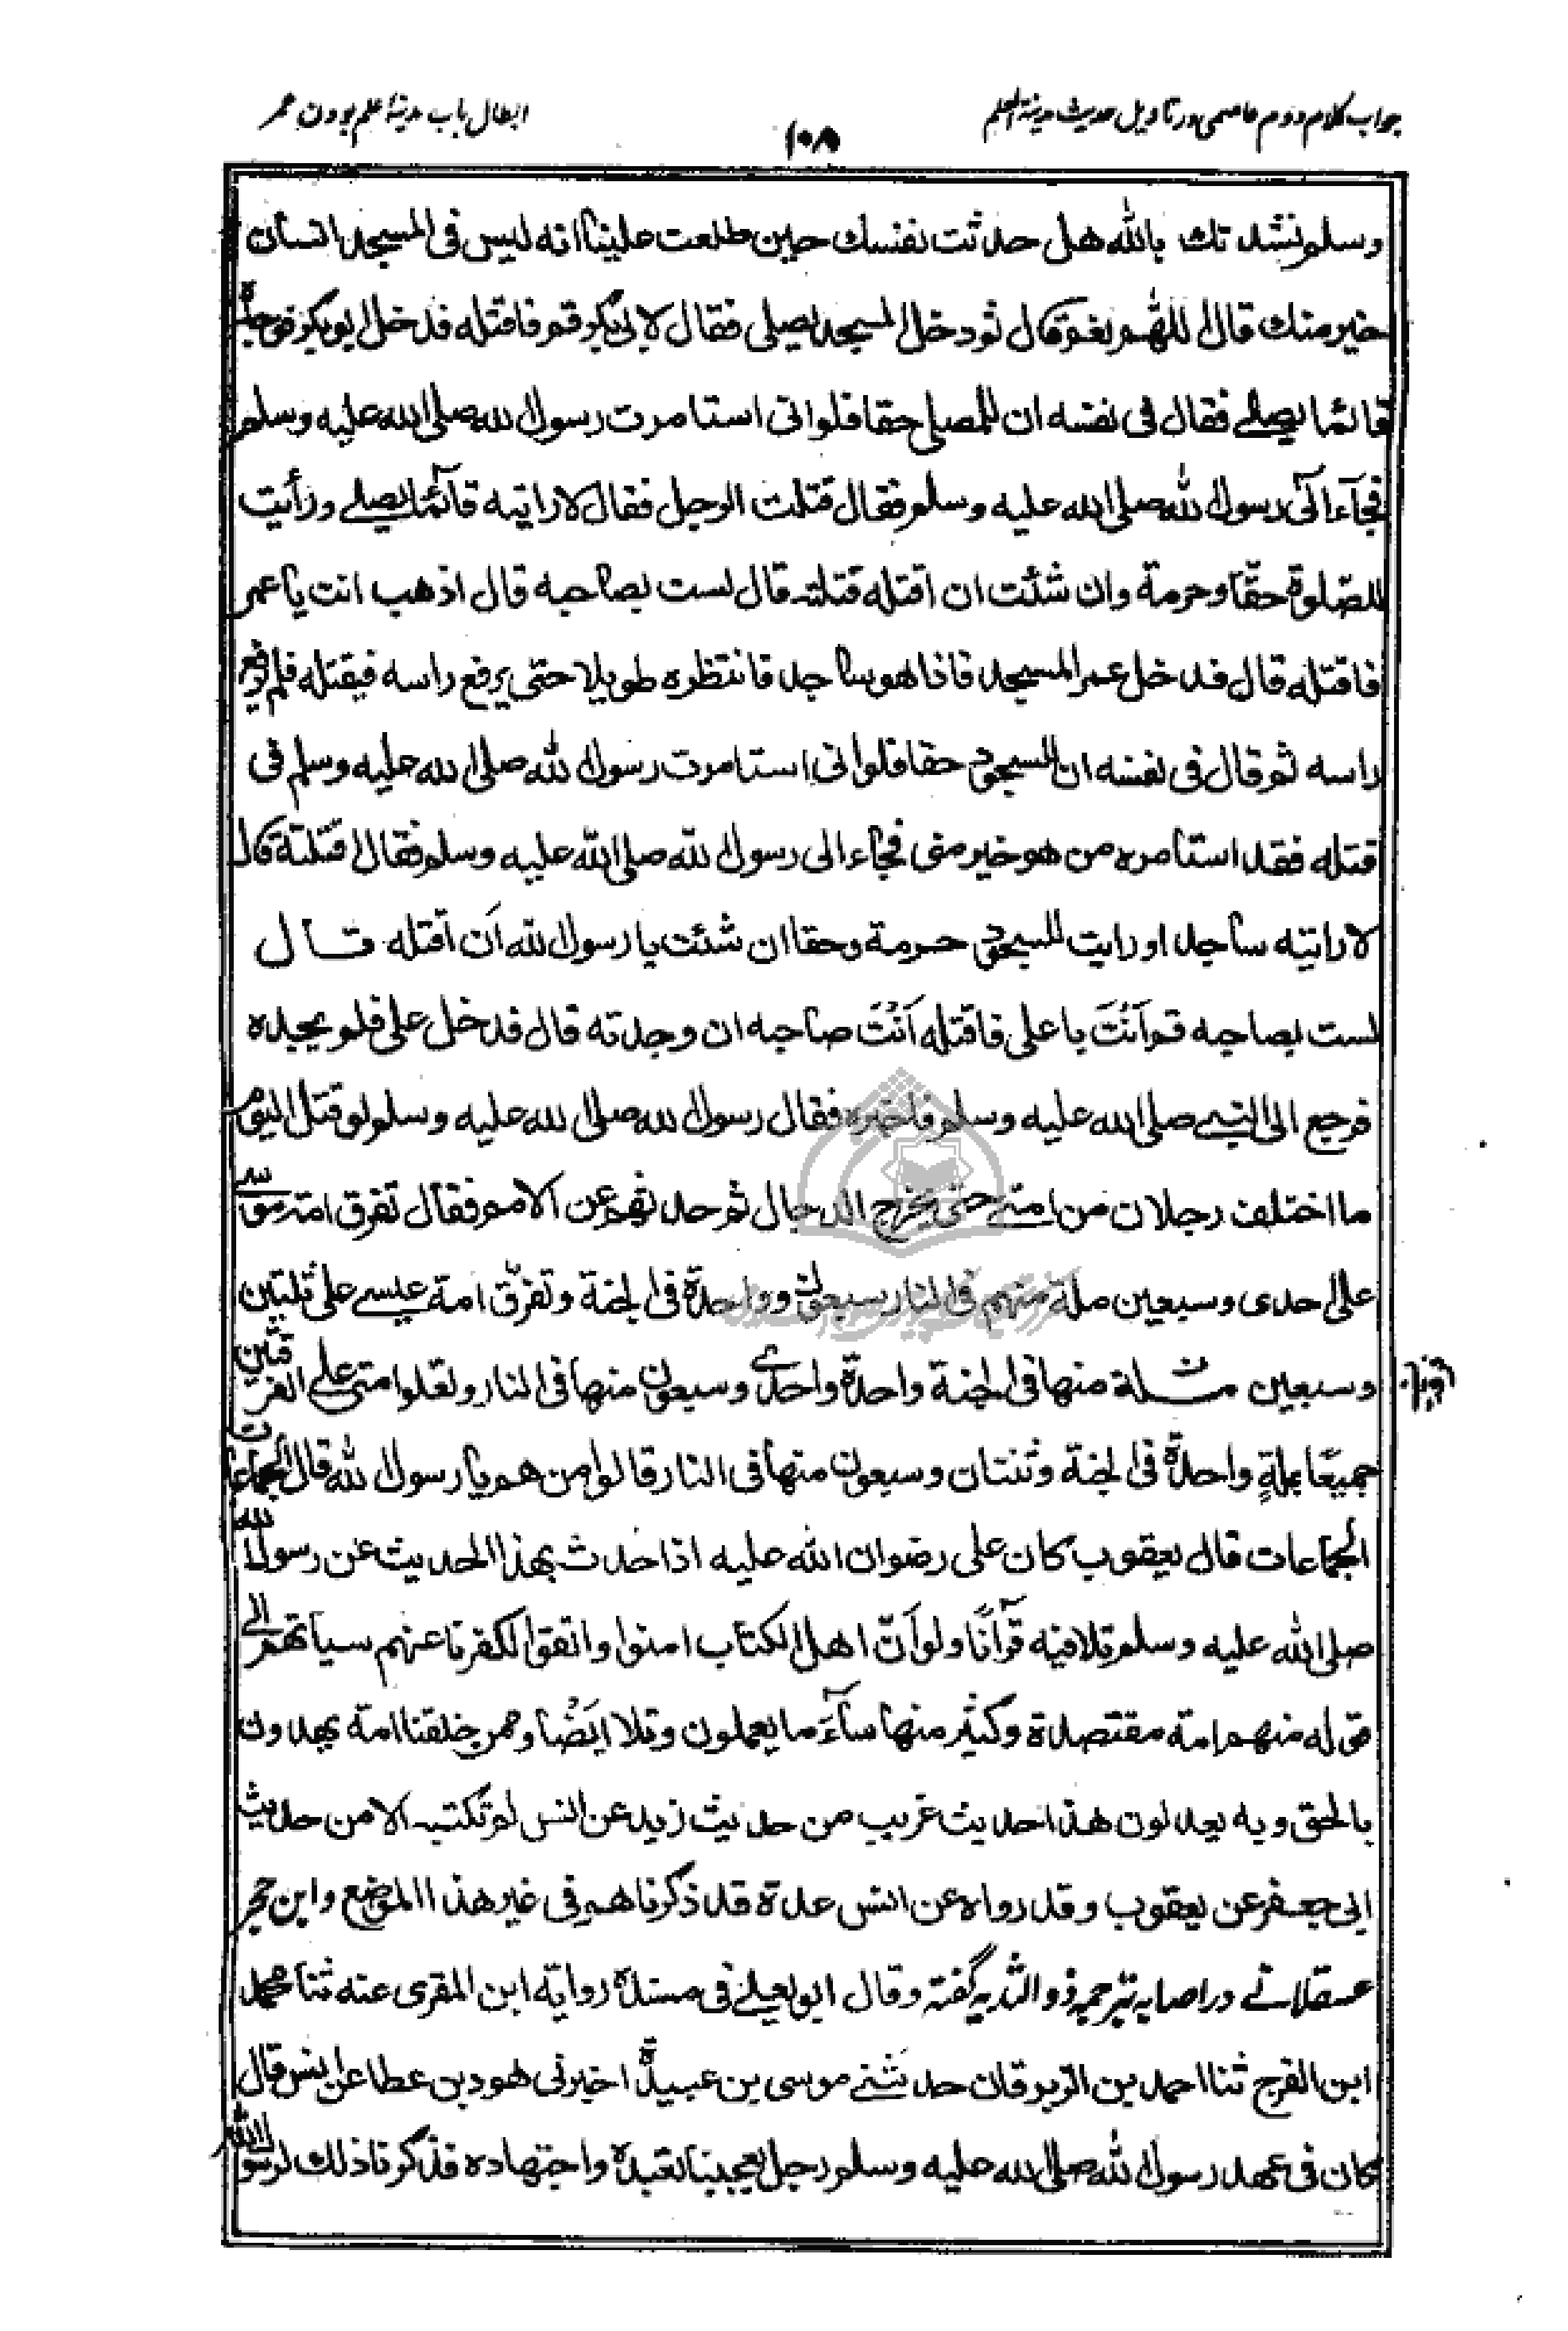 جواب کلام دوم عاصمی در تاویل حدیث مدینة العلم
۱۰۸
ابطال باب مدینۀ علم بودن عمر
وسلم نشدتك بالله هل حدثت نفسك حين طلعت علينا انه ليس فى المسجد انسان
خير منك قال اللهم نعم قال ثم دخل المسجد يصلى فقال لابى بكر قم فاقتله فدخل ابو بكر فوجده
قائما يصلے فقال فى نفسه ان للمصلى حقا فلو انى استامرت رسول الله صلى الله عليه وسلم
فجآء الى رسول الله صلى الله عليه وسلم فقال قتلت الرجل فقال لا رايته قآئما يصلے ورأيت
للصّلوة حقّا وحرمة وان شئت ان اقتله قتلته قال لست بصاحبه قال اذهب انت يا عمر
فاقتله قال فدخل عمر المسجد فاذا هو ساجد فانتظره طويلا حتى يرفع راسه فيقتله فلم يرفع
راسه ثم قال فى نفسه ان للسجود حقا فلو انى استامرت رسول الله صلى الله عليه وسلم فى
قتله فقد استامره من هو خير منى فجاء الى رسول الله صلى الله عليه وسلم فقال اقتلتة قال
لا رايته ساجدا ورايت للسجود حرمة وحقا ان شئت يا رسول الله اَن اقتله قال
لست بصاحبه قم اَنْتَ يا على فاقتله اَنْتَ صاحبه ان وجدته قال فدخل على فلم يجده
فرجع الى النبے صلى الله عليه وسلم فاخبره فقال رسول الله صلى الله عليه وسلم لو قتل اليوم
ما اختلف رجلان من امتے حتى يخرج الدجال ثم حدثهم عن الامم فقال تفرق امة موسے
على احدى وسبعين ملة منهم فى النار سبعون وواحدة فى الجنة وتفرّق امة عيسے على ثلتين
وسبعين ملة منها فى الجنة واحدة واحدے وسبعون منها فى النار وتعلو امتى علے الفرقتين
جميعًا بملةٍ واحدة فى الجنة وثنتان وسبعون منها فى النار قالوا من هم يا رسول الله قال الجماعات
الجماعات قال يعقوب كان على رضوان الله عليه اذا حدث بهذا الحديث عن رسول الله
صلى الله عليه وسلم تلا فيه قرآنًا ولو اَنّ اهل الكتاب امنوا واتقوا لكفرنا عنهم سياتهم الى
قوله منهم امة مقتصدة وكثير منها سآءَ ما يعملون وتلا ايضًا وممن خلقنا امة يهدون
بالحق وبه يعدلون هذا حديث غريب من حديث زيد عن انس لم نكتبه الا من حديث
ابى جعفر عن يعقوب وقد رواه عن انس عدة قد ذكرناهم فى غير هذا الموضع وابن حجر
عسقلانے در اصابه بترجمه ذو الثديه گفته وقال ابو يعلے فى مسنده رواية ابن المقرى عنه ثنا محمد
ابن الفرج ثنا احمد بن الزبرقان حدثنے موسى بن عبيدة اخبرنى هود بن عطا عن انس قال
كان فى عهد رسول الله صلى الله عليه وسلم رجل يعجبنا تعبده واجتهاده فذكرنا ذلك لرسول الله